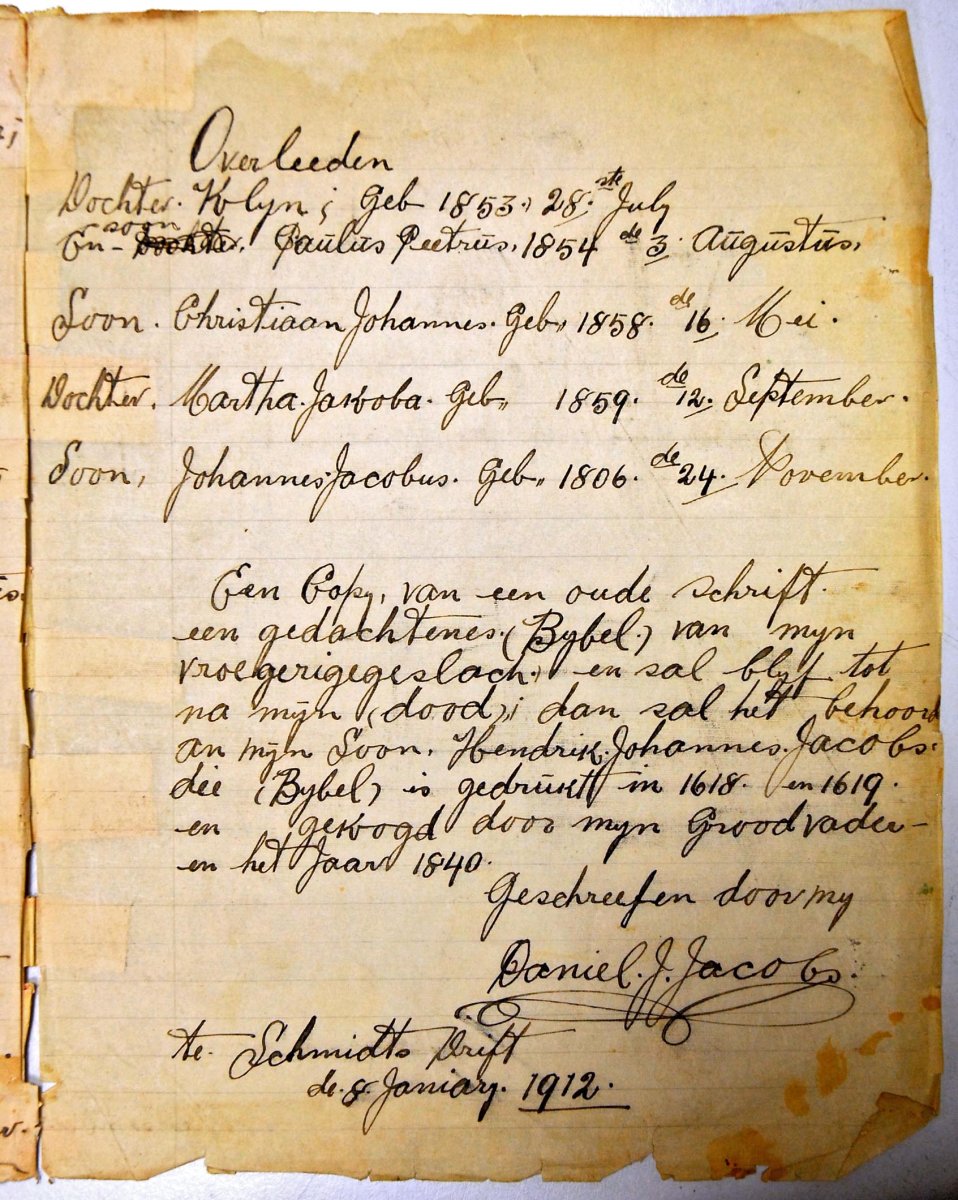 Overleeden
Dochter. Klyn; Geb 1853., 28.ste July
soon
En - Dochter. Paulus Peetrus, 1854 de 3. Augustus.
Soon. Christiaan Johannes. Geb,, 1858. de 16. Mei.
Dochter. Martha. Jakoba. Geb,, 1859. de 12. September.
Soon, Johannes Jacobus. Geb,, 1806. de 24. November.
Een Copy, van een oude schrift.
een gedachtenes. (Bybel.) van myn
vroegerigegeslach.) en sal blyf tot
na myn (dood), dan sal het behoord
an myn Soon. Hendrik. Johannes. Jacobs.
die (Bybel) is gedrukt in 1618. en 1619.
en gekogd door myn Groodvader -
en het Jaar 1840.
Geschreefen door my
Daniel. J. Jacobs.
te. Schmidts Drift
de. 8. Janiary. 1912.